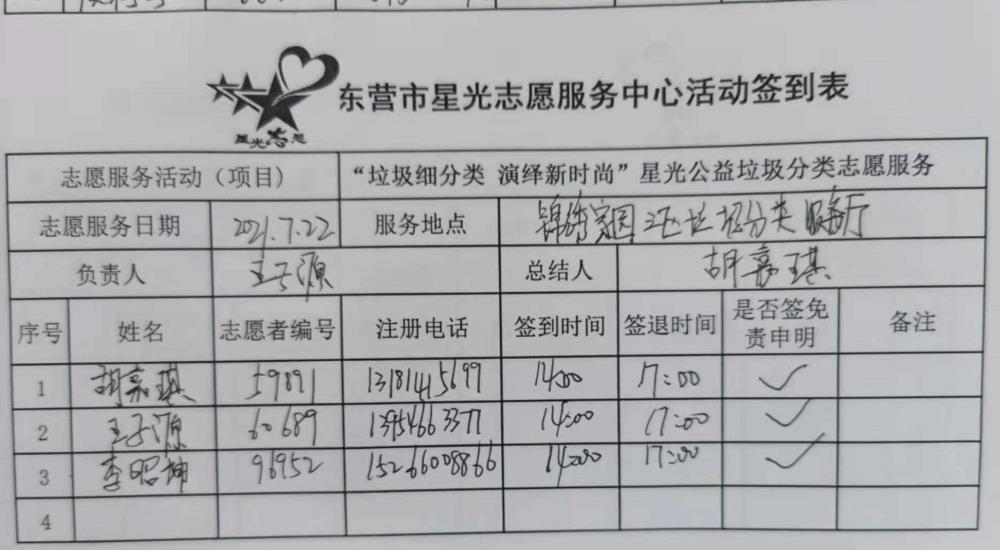 东营市星光志愿服务中心活动签到表
星光志愿
志愿服务活动（项目） “垃圾细分类 演绎新时尚”星光公益垃圾分类志愿服务
志愿服务日期 2021.7.22 服务地点 锦绣家园三区垃圾分类服务厅
负责人 王子源 总结人 胡嘉琪
序号 姓名 志愿者编号 注册电话 签到时间 签退时间 是否签免责申明 备注
1 胡嘉琪 59891 13181415699 14:00 17:00 ✓
2 王子源 60689 13954663377 14:00 17:00 ✓
3 李昭坤 96952 15266008866 14:00 17:00 ✓
4